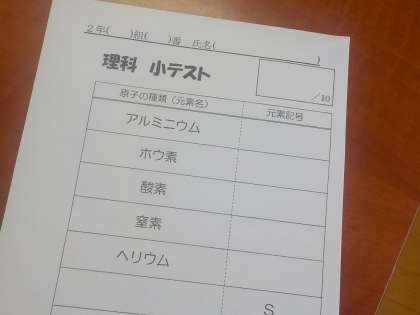 2年( )組( )番 氏名( )
理科 小テスト
／10
原子の種類（元素名） 元素記号
アルミニウム
ホウ素
酸素
窒素
ヘリウム
S